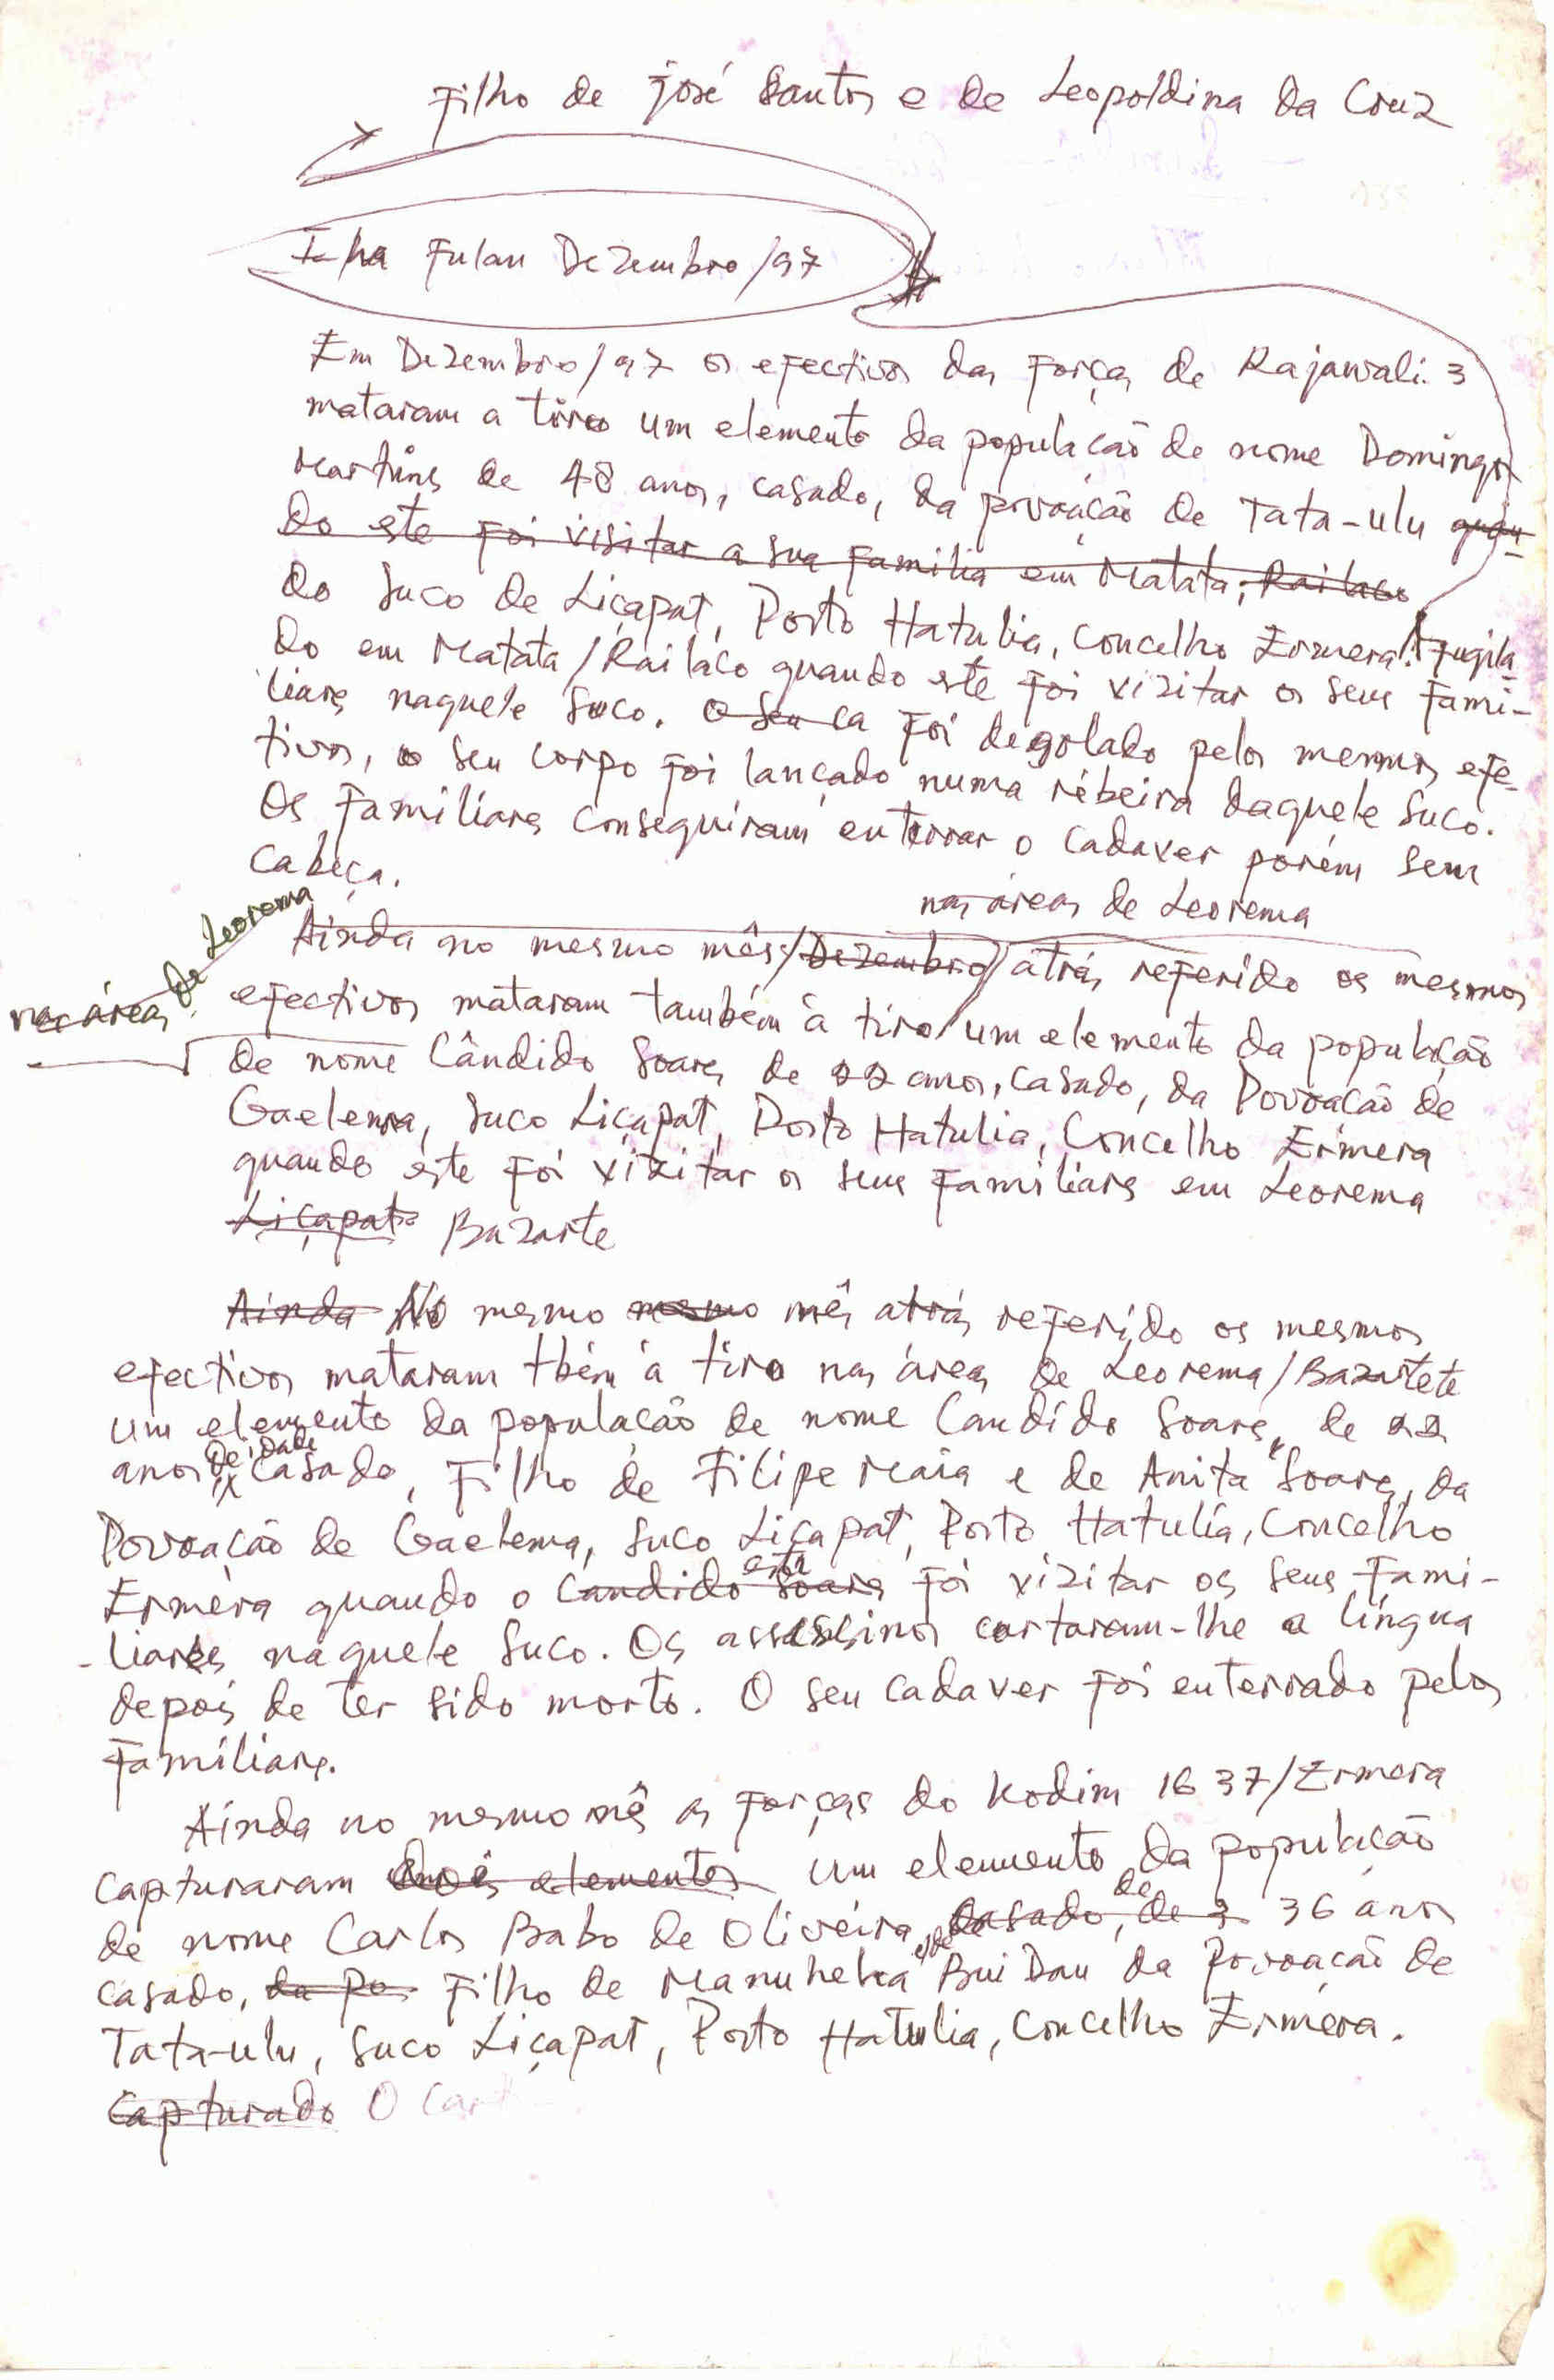 Filho de José Santos e de Leopoldina da Cruz
Iha Fulan Dezembro/97
Em Dezembro/97 os efectivos das forças de Rajawali 3
mataram a tiro um elemento da população de nome Domingos
Martins de 48 anos, casado, da povoação de Tata-ulu quan-
do este foi visitar a sua familia em Matata, Railaco
do Suco de Liçapat, Posto Hatulia, Concelho Ermera. Fuzila
do em Matata/Railaco quando este foi vizitar os seus fami-
liares naquele Suco. O seu ca foi degolado pelos mesmos efe-
tivos, o seu corpo foi lançado numa rebeira daquele Suco.
Os familiares conseguiram enterrar o cadaver porém sem
cabeça.
nas áreas de Leorema
Ainda no mesmo mês/Dezembro/atrás referido os mesmos
nas áreas de Leorema
efectivos mataram também à tiro um elemento da população
de nome Cândido Soares de 22 anos, casado, da Povoação de
Gaelema, Suco Liçapat, Posto Hatulia, Concelho Ermera
quando este foi vizitar os seus familiares em Leorema
Liçapat Bazarte
Ainda No mesmo mesmo mês atrás referido os mesmos
efectivos mataram tbém à tiro nas áreas de Leorema/Bazartete
um elemento da população de nome Candido Soares, de 22
anos de idade casado, Filho de Filipe Maia e de Anita Soares, da
Povoação de Gaelema, Suco Liçapat, Posto Hatulia, Concelho
Ermera quando o Candido Soares este foi vizitar os seus fami-
-liares naquele Suco. Os assassinos cortaram-lhe a língua
depois de ter sido morto. O seu cadaver foi enterrado pelos
familiares.
Ainda no mesmo mês as forças do Kodim 1637/Ermera
capturaram dois elementos um elemento da população
de nome Carlos Babo de Oliveira, casado, de 3 de 36 anos
casado, da Po Filho de Manuheka e de Bui Dau da Povoação de
Tata-ulu, Suco Liçapat, Posto Hatulia, Concelho Ermera.
Capturado O Car